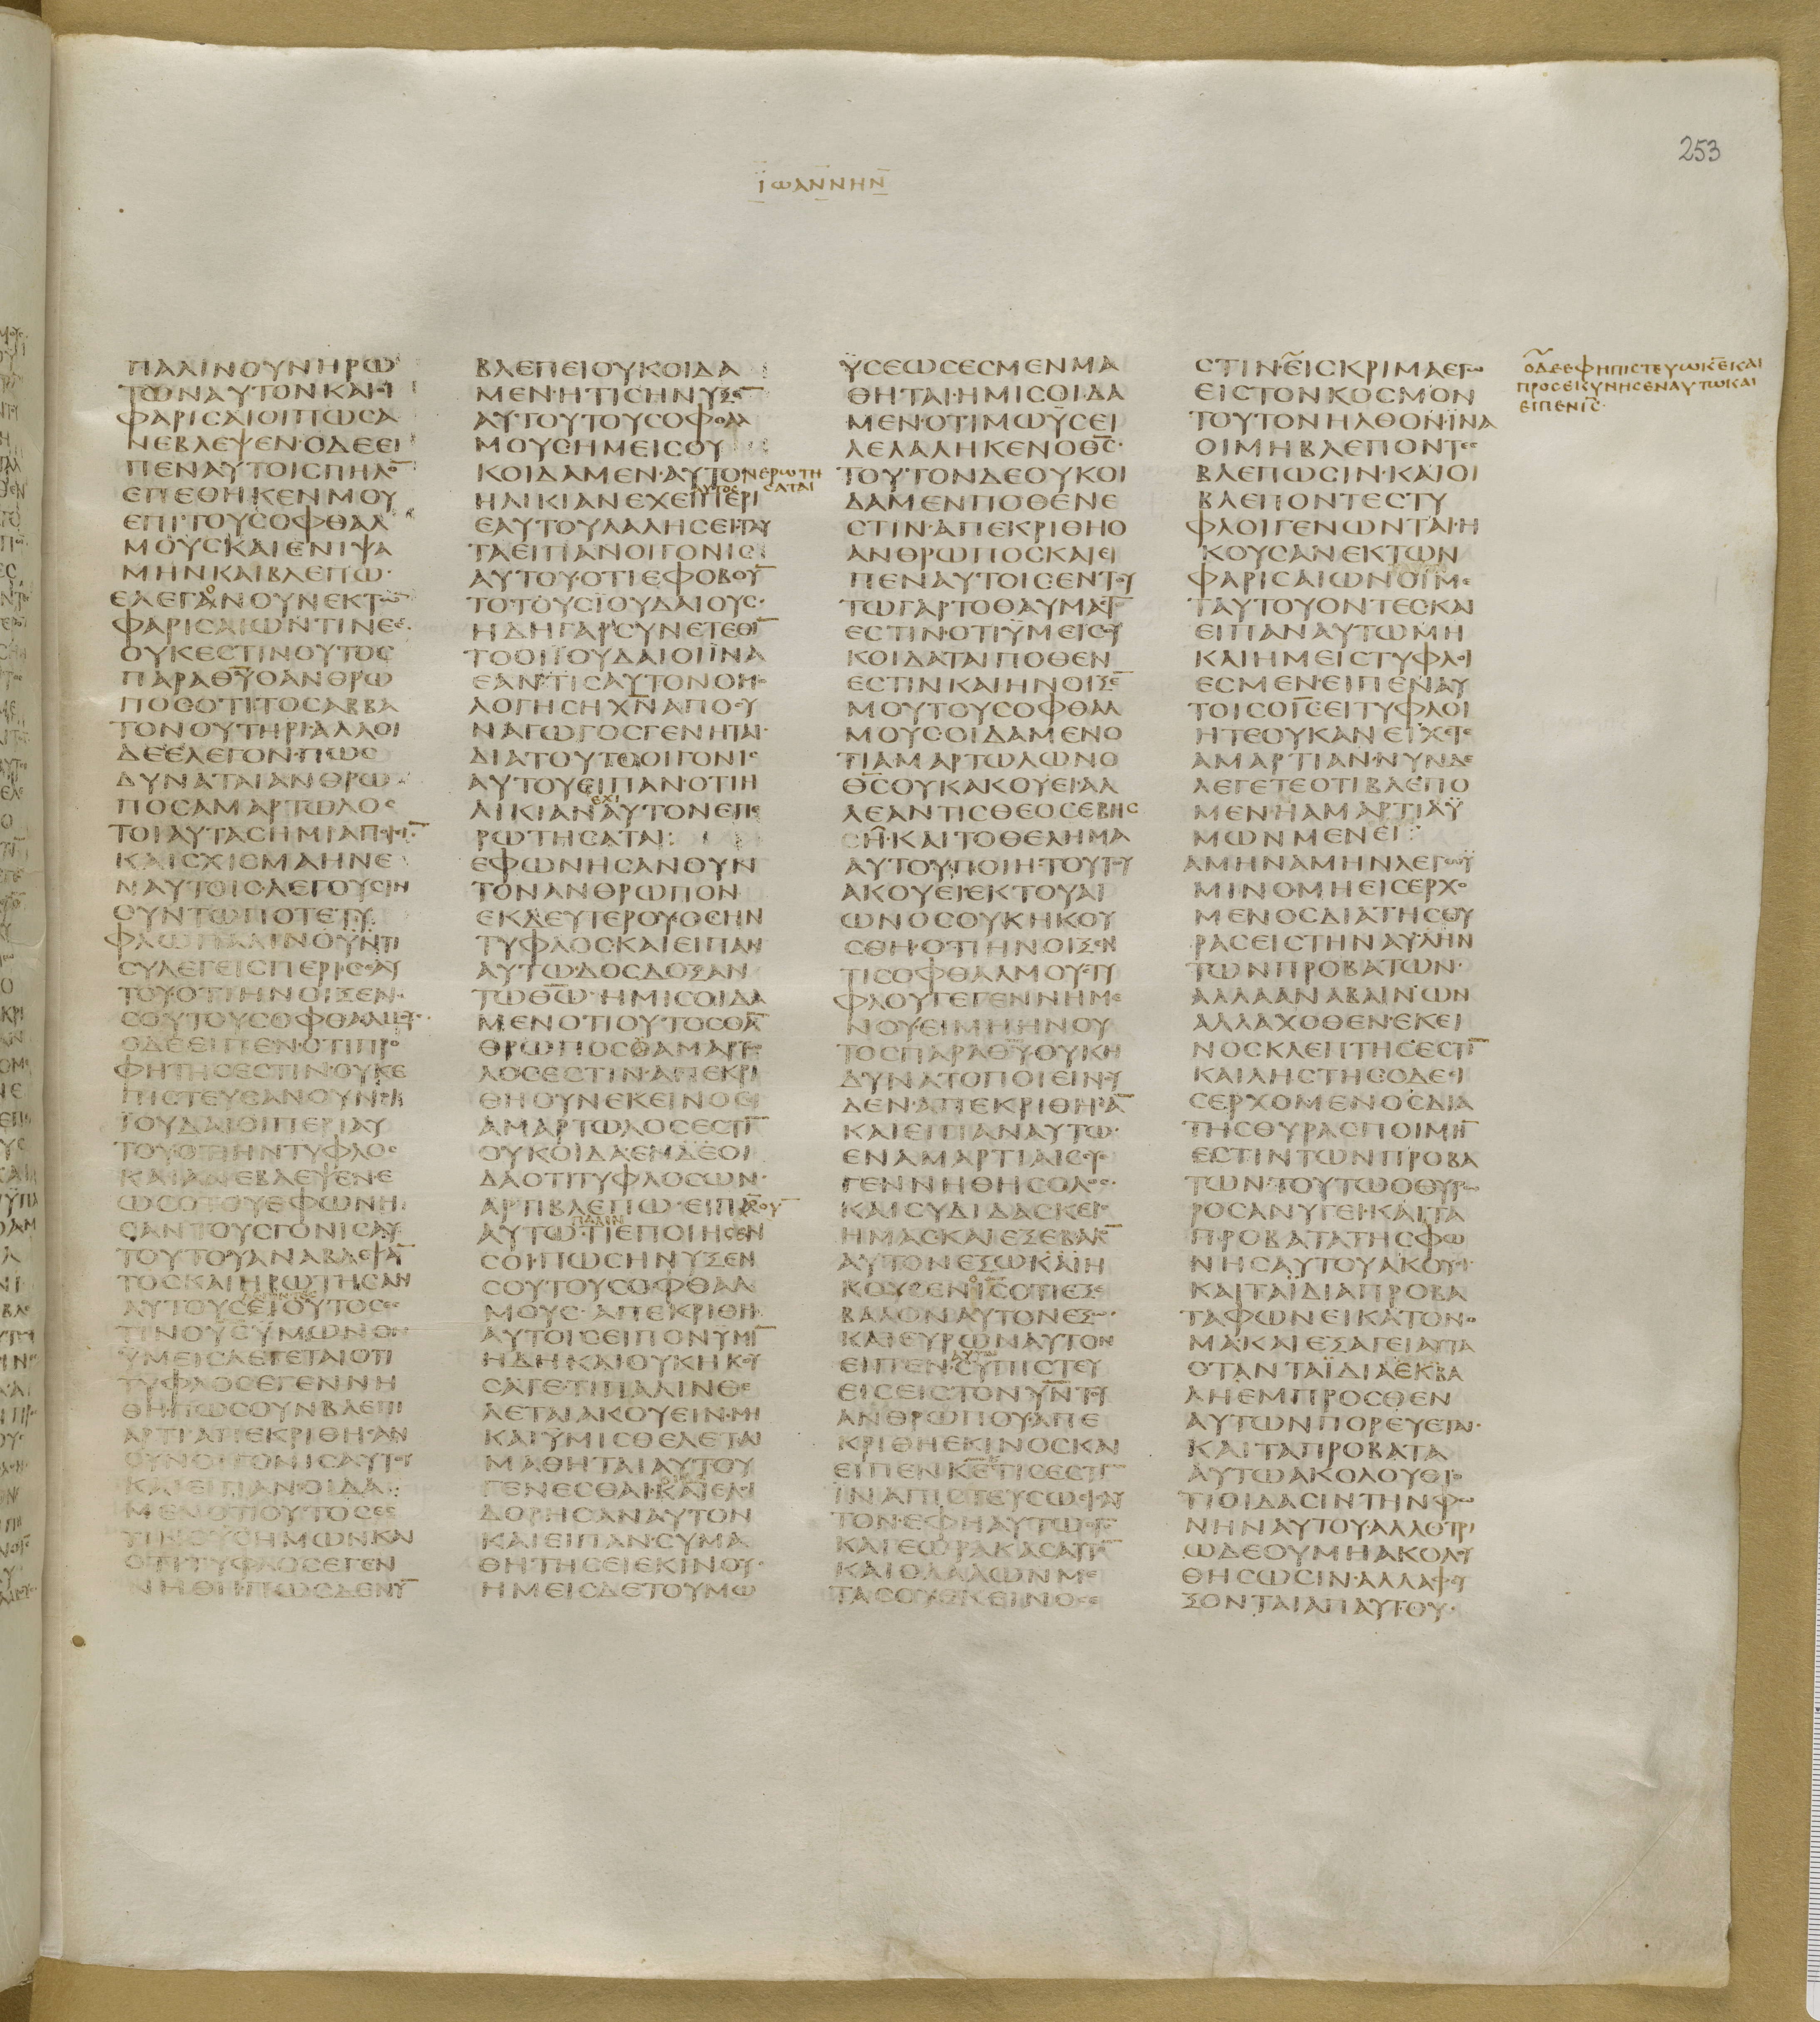 253
ΙΩΑΝΝΗΝ
ΠΑΛΙΝΟΥΝΗΡΩ
ΤΩΝΑΥΤΟΝΚΑΙΟΙ
ΦΑΡΙϹΑΙΟΙΠΩϹΑ
ΝΕΒΛΕΨΕΝ·ΟΔΕΕΙ
ΠΕΝΑΥΤΟΙϹΠΗΛΟ̅
ΕΠΕΘΗΚΕΝΜΟΥ
ΕΠΙΤΟΥϹΟΦΘΑΛ
ΜΟΥϹΚΑΙΕΝΙΨΑ
ΜΗΝΚΑΙΒΛΕΠΩ·
ΕΛΕΓΑΝΟΥΝΕΚΤΩ̅
ΦΑΡΙϹΑΙΩΝΤΙΝΕϹ
ΟΥΚΕϹΤΙΝΟΥΤΟϹ
ΠΑΡΑΘΥ̅ΟΑΝΘΡΩ
ΠΟϹΟΤΙΤΟϹΑΒΒΑ
ΤΟΝΟΥΤΗΡΙ·ΑΛΛΟΙ
ΔΕΕΛΕΓΟΝ·ΠΩϹ
ΔΥΝΑΤΑΙΑΝΘΡΩ
ΠΟϹΑΜΑΡΤΩΛΟϹ
ΤΟΙΑΥΤΑϹΗΜΙΑΠΟΙΕΙ̅
ΚΑΙϹΧΙϹΜΑΗΝΕ
ΝΑΥΤΟΙϹΛΕΓΟΥϹΙΝ
ΟΥΝΤΩΠΟΤΕΤΥ
ΦΛΩΠΑΛΙΝΟΥΝΤΙ
ϹΥΛΕΓΕΙϹΠΕΡΙϹΕΑΥ
ΤΟΥΟΤΙΗΝΟΙΞΕΝ·
ϹΟΥΤΟΥϹΟΦΘΑΛΜΟΥϹ·
ΟΔΕΕΙΠΕΝ·ΟΤΙΠΡΟ
ΦΗΤΗϹΕϹΤΙΝ·ΟΥΚΕ
ΠΙϹΤΕΥϹΑΝΟΥΝΟΙ
ΙΟΥΔΑΙΟΙΠΕΡΙΑΥ
ΤΟΥΟΤΙΗΝΤΥΦΛΟϹ
ΚΑΙΑΝΕΒΛΕΨΕΝΕ
ΩϹΟΤΟΥΕΦΩΝΗ
ϹΑΝΤΟΥϹΓΟΝΙϹΑΥ
ΤΟΥΤΟΥΑΝΑΒΛΕΨΑ̅
ΤΟϹΚΑΙΗΡΩΤΗϹΑΝ
ΑΥΤΟΥϹΕΙΟΥΤΟϹΕϹ
ΤΙΝΟΥϹΥΜΩΝΟΝ
ΥΜΕΙϹΛΕΓΕΤΑΙΟΤΙ
ΤΥΦΛΟϹΕΓΕΝΝΗ
ΘΗΠΩϹΟΥΝΒΛΕΠΙ
ΑΡΤΙ·ΑΠΕΚΡΙΘΗϹΑΝ
ΟΥΝΟΙΓΟΝΙϹΑΥΤΟΥ
ΚΑΙΕΙΠΑΝ·ΟΙΔΑ
ΜΕΝΟΤΙΟΥΤΟϹΕϹ
ΤΙΝΟΥϹΗΜΩΝΚΑΙ
ΟΤΙΤΥΦΛΟϹΕΓΕΝ
ΝΗΘΗ·ΠΩϹΔΕΝΥ̅
ΒΛΕΠΕΙΟΥΚΟΙΔΑ
ΜΕΝ·ΗΤΙϹΗΝΥΞΕ̅
ΑΥΤΟΥΤΟΥϹΟΦΘΑΛ
ΜΟΥϹΗΜΕΙϹΟΥ
ΚΟΙΔΑΜΕΝ·ΑΥΤΟΝΕΡΩΤΗ
ϹΑΤΑΙ
ΑΥΤΟϹ
ΗΛΙΚΙΑΝΕΧΕΙΠΕΡΙ
ΕΑΥΤΟΥΛΑΛΗϹΕΙ·ΤΑΥ
ΤΑΕΙΠΑΝΟΙΓΟΝΙϹ
ΑΥΤΟΥ·ΟΤΙΕΦΟΒΟΥ̅
ΤΟΤΟΥϹΪΟΥΔΑΙΟΥϹ·
ΗΔΗΓΑΡϹΥΝΕΤΕΘΙ̅
ΤΟΟΙΪΟΥΔΑΙΟΙΪΝΑ
ΕΑΝΤΙϹΑΥΤΟΝΟΜΟ
ΛΟΓΗϹΗΧΝ̅ΑΠΟϹΥ
ΝΑΓΩΓΟϹΓΕΝΗΤΑΙ·
ΔΙΑΤΟΥΤΟΟΙΓΟΝΙϹ
ΑΥΤΟΥΕΙΠΑΝ·ΟΤΙΗ
ΕΧΙ
ΛΙΚΙΑΝΑΥΤΟΝΕΠΕ
ΡΩΤΗϹΑΤΑΙ:
ΕΦΩΝΗϹΑΝΟΥΝ
ΤΟΝΑΝΘΡΩΠΟΝ
ΕΚΔΕΥΤΕΡΟΥ·ΟϹΗΝ
ΤΥΦΛΟϹΚΑΙΕΙΠΑΝ
ΑΥΤΩ·ΔΟϹΔΟΞΑΝ
ΤΩΘΩ̅·ΗΜΙϹΟΙΔΑ
ΜΕΝΟΤΙΟΥΤΟϹΟΑ̅
ΘΡΩΠΟϹΟΑΜΑΡΤΩ
ΛΟϹΕϹΤΙΝ·ΑΠΕΚΡΙ
ΘΗΟΥΝΕΚΕΙΝΟϹΕΙ
ΑΜΑΡΤΩΛΟϹΕϹΤΙ̅
ΟΥΚΟΙΔΑ·ΕΝΔΕΟΙ
ΔΑΟΤΙΤΥΦΛΟϹΩΝ·
ΑΡΤΙΒΛΕΠΩ·ΕΙΠΑ̅ΟΥ̅
ΠΑΛΙΝ
ΑΥΤΩ·ΤΙΕΠΟΙΗϹΕΝ
ϹΟΙ·ΠΩϹΗΝΥΞΕΝ
ϹΟΥΤΟΥϹΟΦΘΑΛ
ΜΟΥϹ·ΑΠΕΚΡΙΘΗ
ΑΥΤΟΙϹΕΙΠΟΝΥΜΙ̅
ΗΔΗ·ΚΑΙΟΥΚΗΚΟΥ
ϹΑΤΕ·ΤΙΠΑΛΙΝΘΕ
ΛΕΤΑΙΑΚΟΥΕΙΝ·ΜΗ
ΚΑΙΫΜΙϹΘΕΛΕΤΑΙ
ΜΑΘΗΤΑΙΑΥΤΟΥ
ΓΕΝΕϹΘΑΙ·ΚΑΙΕΛΟΙ
ΔΟΡΗϹΑΝΑΥΤΟΝ
ΚΑΙΕΙΠΑΝ·ϹΥΜΑ
ΘΗΤΗϹΕΙΕΚΙΝΟΥ·
ΗΜΕΙϹΔΕΤΟΥΜΩ
ΫϹΕΩϹΕϹΜΕΝΜΑ
ΘΗΤΑΙ·ΗΜΙϹΟΙΔΑ
ΜΕΝ·ΟΤΙΜΩΫϹΕΙ
ΛΕΛΑΛΗΚΕΝΟΘϹ̅·
ΤΟΥΤΟΝΔΕΟΥΚΟΙ
ΔΑΜΕΝΠΟΘΕΝΕ
ϹΤΙΝ·ΑΠΕΚΡΙΘΗΟ
ΑΝΘΡΩΠΟϹΚΑΙΕΙ
ΠΕΝΑΥΤΟΙϹΕΝΤΟΥ
ΤΩΓΑΡΤΟΘΑΥΜΑϹΤΟ̅
ΕϹΤΙΝ·ΟΤΙΫΜΕΙϹΟΥ
ΚΟΙΔΑΤΑΙΠΟΘΕΝ
ΕϹΤΙΝΚΑΙΗΝΟΙΞΕ̅
ΜΟΥΤΟΥϹΟΦΘΑΛ
ΜΟΥϹΟΙΔΑΜΕΝΟ
ΤΙΑΜΑΡΤΩΛΩΝΟ
ΘϹ̅ΟΥΚΑΚΟΥΕΙ·ΑΛ
ΛΕΑΝΤΙϹΘΕΟϹΕΒΗϹ
ϹΗ·ΚΑΙΤΟΘΕΛΗΜΑ
ΑΥΤΟΥΠΟΙΗ·ΤΟΥΤΟΥ
ΑΚΟΥΕΙ·ΕΚΤΟΥΑΙ
ΩΝΟϹΟΥΚΗΚΟΥ
ϹΘΗ·ΟΤΙΗΝΟΙΞΕΝ
ΤΙϹΟΦΘΑΛΜΟΥϹΤΥ
ΦΛΟΥΓΕΓΕΝΝΗΜΕ
ΝΟΥΕΙΜΗΗΝΟΥ
ΤΟϹΠΑΡΑΘΥ̅·ΟΥΚΗ
ΔΥΝΑΤΟΠΟΙΕΙΝΟΥ
ΔΕΝ·ΑΠΕΚΡΙΘΗϹΑ̅
ΚΑΙΕΙΠΑΝΑΥΤΩ·
ΕΝΑΜΑΡΤΙΑΙϹϹΥ
ΓΕΝΝΗΘΗϹΟΛΟϹ·
ΚΑΙϹΥΔΙΔΑϹΚΕΙϹ
ΗΜΑϹΚΑΙΕΞΕΒΑΛΟ̅
ΑΥΤΟΝΕΞΩΚΑΙΗ
ΚΟΥϹΕΝΙϹ̅ΟΤΙΕΞΕ
ΒΑΛΟΝΑΥΤΟΝΕΞΩ·
ΚΑΙΕΥΡΩΝΑΥΤΟΝ
ΑΥΤΩ
ΕΙΠΕΝ·ϹΥΠΙϹΤΕΥ
ΕΙϹΕΙϹΤΟΝΥΝ̅ΤΟΥ
ΑΝΘΡΩΠΟΥ·ΑΠΕ
ΚΡΙΘΗΕΚΙΝΟϹΚΑΙ
ΕΙΠΕΝΚΕ̅ΤΙϹΕϹΤΙ̅
ΙΝΑΠΙϹΤΕΥϹΩΕΙϹΑΥ
ΤΟΝ·ΕΦΗΑΥΤΩΟΙϹ̅
ΚΑΙΕΩΡΑΚΑϹΑΥΤΟ̅
ΚΑΙΟΛΑΛΩΝΜΕ
ΤΑϹΟΥΕΚΕΙΝΟϹΕ
ϹΤΙΝ·ΕΙϹΚΡΙΜΑΕΓΩ
ΕΙϹΤΟΝΚΟϹΜΟΝ
ΤΟΥΤΟΝΗΛΘΟΝ·ΪΝΑ
ΟΙΜΗΒΛΕΠΟΝΤΕϹ
ΒΛΕΠΩϹΙΝ·ΚΑΙΟΙ
ΒΛΕΠΟΝΤΕϹΤΥ
ΦΛΟΙΓΕΝΩΝΤΑΙ·Η
ΚΟΥϹΑΝΕΚΤΩΝ
ΦΑΡΙϹΑΙΩΝΟΙΜΕ
ΤΑΥΤΟΥΟΝΤΕϹΚΑΙ
ΕΙΠΑΝΑΥΤΩΜΗ
ΚΑΙΗΜΕΙϹΤΥΦΛΟΙ
ΕϹΜΕΝ·ΕΙΠΕΝΑΥ
ΤΟΙϹΟΙϹ̅ΕΙΤΥΦΛΟΙ
ΗΤΕΟΥΚΑΝΕΙΧΕΤΕ
ΑΜΑΡΤΙΑΝ·ΝΥΝΔΕ
ΛΕΓΕΤΕΟΤΙΒΛΕΠΟ
ΜΕΝ·ΗΑΜΑΡΤΙΑΫ
ΜΩΝΜΕΝΕΙ:
ΑΜΗΝΑΜΗΝΛΕΓΩΫ
ΜΙΝΟΜΗΕΙϹΕΡΧΟ
ΜΕΝΟϹΔΙΑΤΗϹΘΥ
ΡΑϹΕΙϹΤΗΝΑΥΛΗΝ
ΤΩΝΠΡΟΒΑΤΩΝ·
ΑΛΛΑΑΝΑΒΑΙΝΩΝ
ΑΛΛΑΧΟΘΕΝ·ΕΚΕΙ
ΝΟϹΚΛΕΠΤΗϹΕϹΤΙ̅
ΚΑΙΛΗϹΤΗϹΟΔΕΕΙ
ϹΕΡΧΟΜΕΝΟϹΔΙΑ
ΤΗϹΘΥΡΑϹΠΟΙΜΗ̅
ΕϹΤΙΝΤΩΝΠΡΟΒΑ
ΤΩΝ·ΤΟΥΤΩΟΘΥΡΩ
ΡΟϹΑΝΥΓΕΙ·ΚΑΙΤΑ
ΠΡΟΒΑΤΑΤΗϹΦΩ
ΝΗϹΑΥΤΟΥΑΚΟΥΕΙ·
ΚΑΙΤΑΪΔΙΑΠΡΟΒΑ
ΤΑΦΩΝΕΙΚΑΤΟΝΟ
ΜΑ·ΚΑΙΕΞΑΓΕΙΑΥΤΑ
ΟΤΑΝΤΑΪΔΙΑΕΚΒΑ
ΛΗΕΜΠΡΟϹΘΕΝ
ΑΥΤΩΝΠΟΡΕΥΕΤΑΙ·
ΚΑΙΤΑΠΡΟΒΑΤΑ
ΑΥΤΩΑΚΟΛΟΥΘΙΟ
ΤΙΟΙΔΑϹΙΝΤΗΝΦΩ
ΝΗΝΑΥΤΟΥ·ΑΛΛΟΤΡΙ
ΩΔΕΟΥΜΗΑΚΟΛΟΥ
ΘΗϹΩϹΙΝ·ΑΛΛΑΦΕΥ
ΞΟΝΤΑΙΑΠΑΥΤΟΥ·
ΟΔΕΕΦΗΠΙϹΤΕΥΩΚΕ̅ΚΑΙ
ΠΡΟϹΕΚΥΝΗϹΕΝΑΥΤΩΚΑΙ
ΕΙΠΕΝΙϹ̅·